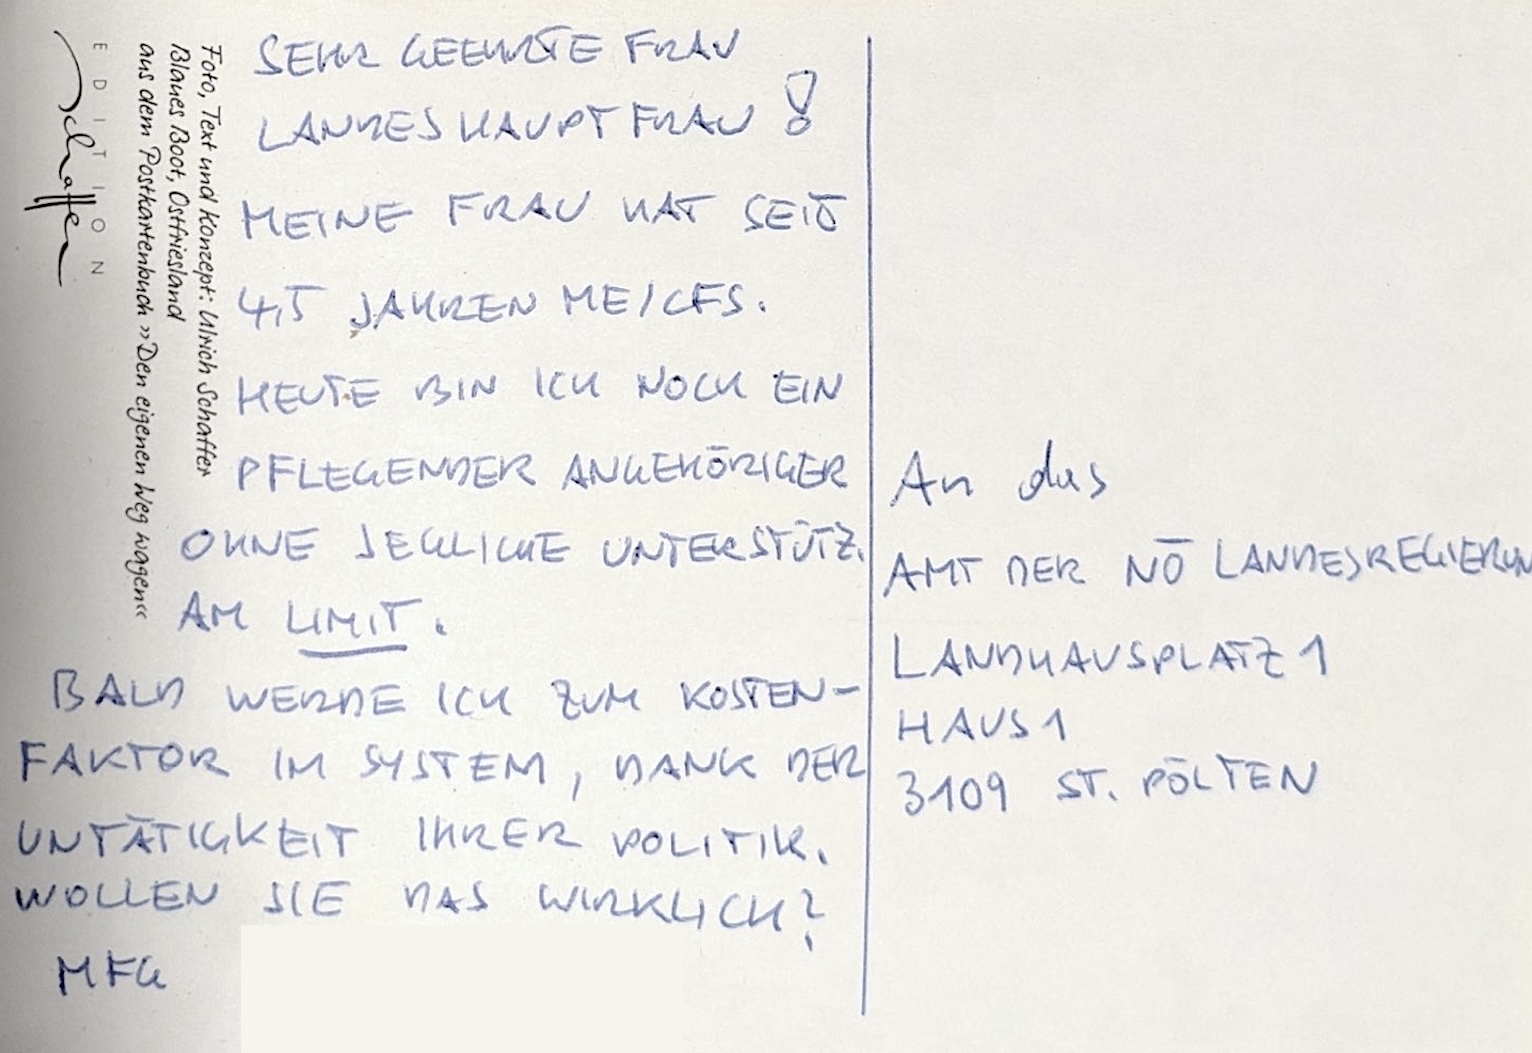 SEHR GEEHRTE FRAU
LANDESHAUPTFRAU!
MEINE FRAU HAT SEIT
4,5 JAHREN ME/CFS.
HEUTE BIN ICH NOCH EIN
PFLEGENDER ANGEHÖRIGER
OHNE JEGLICHE UNTERSTÜTZ.
AM LIMIT.
BALD WERDE ICH ZUM KOSTEN-
FAKTOR IM SYSTEM, DANK DER
UNTÄTIGKEIT IHRER POLITIK.
WOLLEN SIE DAS WIRKLICH?
MFG
An das
AMT DER NÖ LANDESREGIERUN
LANDHAUSPLATZ 1
HAUS 1
3109 ST. PÖLTEN
Foto, Text und Konzept: Ulrich Schaffer
Blaues Boot, Ostfriesland
aus dem Postkartenbuch »Den eigenen Weg wagen«
EDITION
Schaffer